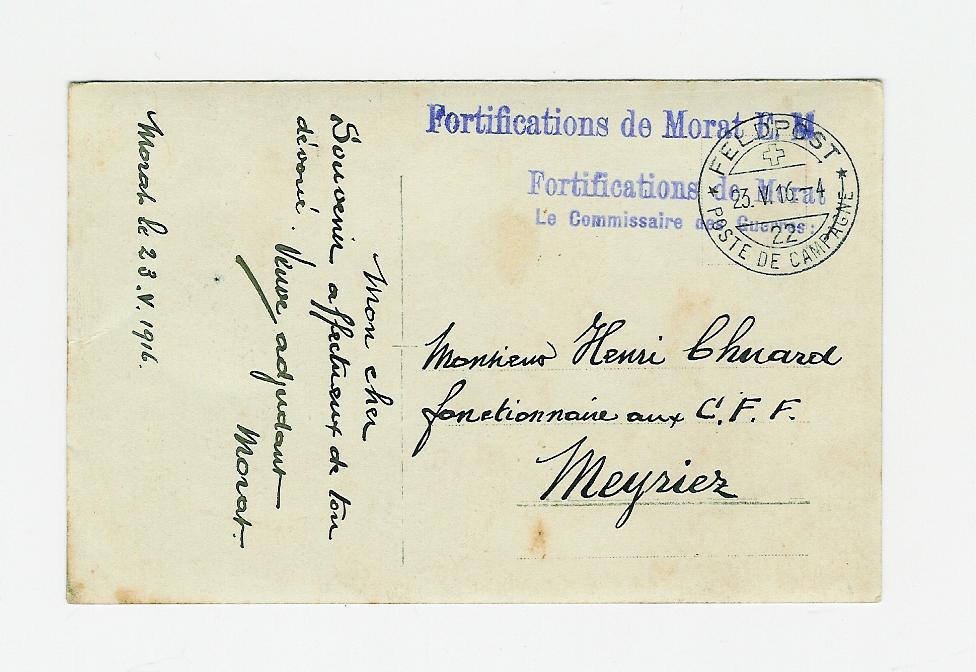 Fortifications de Morat E. M.
Fortifications de Morat
Le Commissaire des Guerres.
FELDPOST
23.V.16.-4
22
POSTE DE CAMPAGNE
Monsieur Henri Chuard
fonctionnaire aux C.F.F.
Meyriez
Mon cher
Souvenir affectueux de ton
dévoué. Veuve adjudant
Morat.
Morat le 23.V.1916.